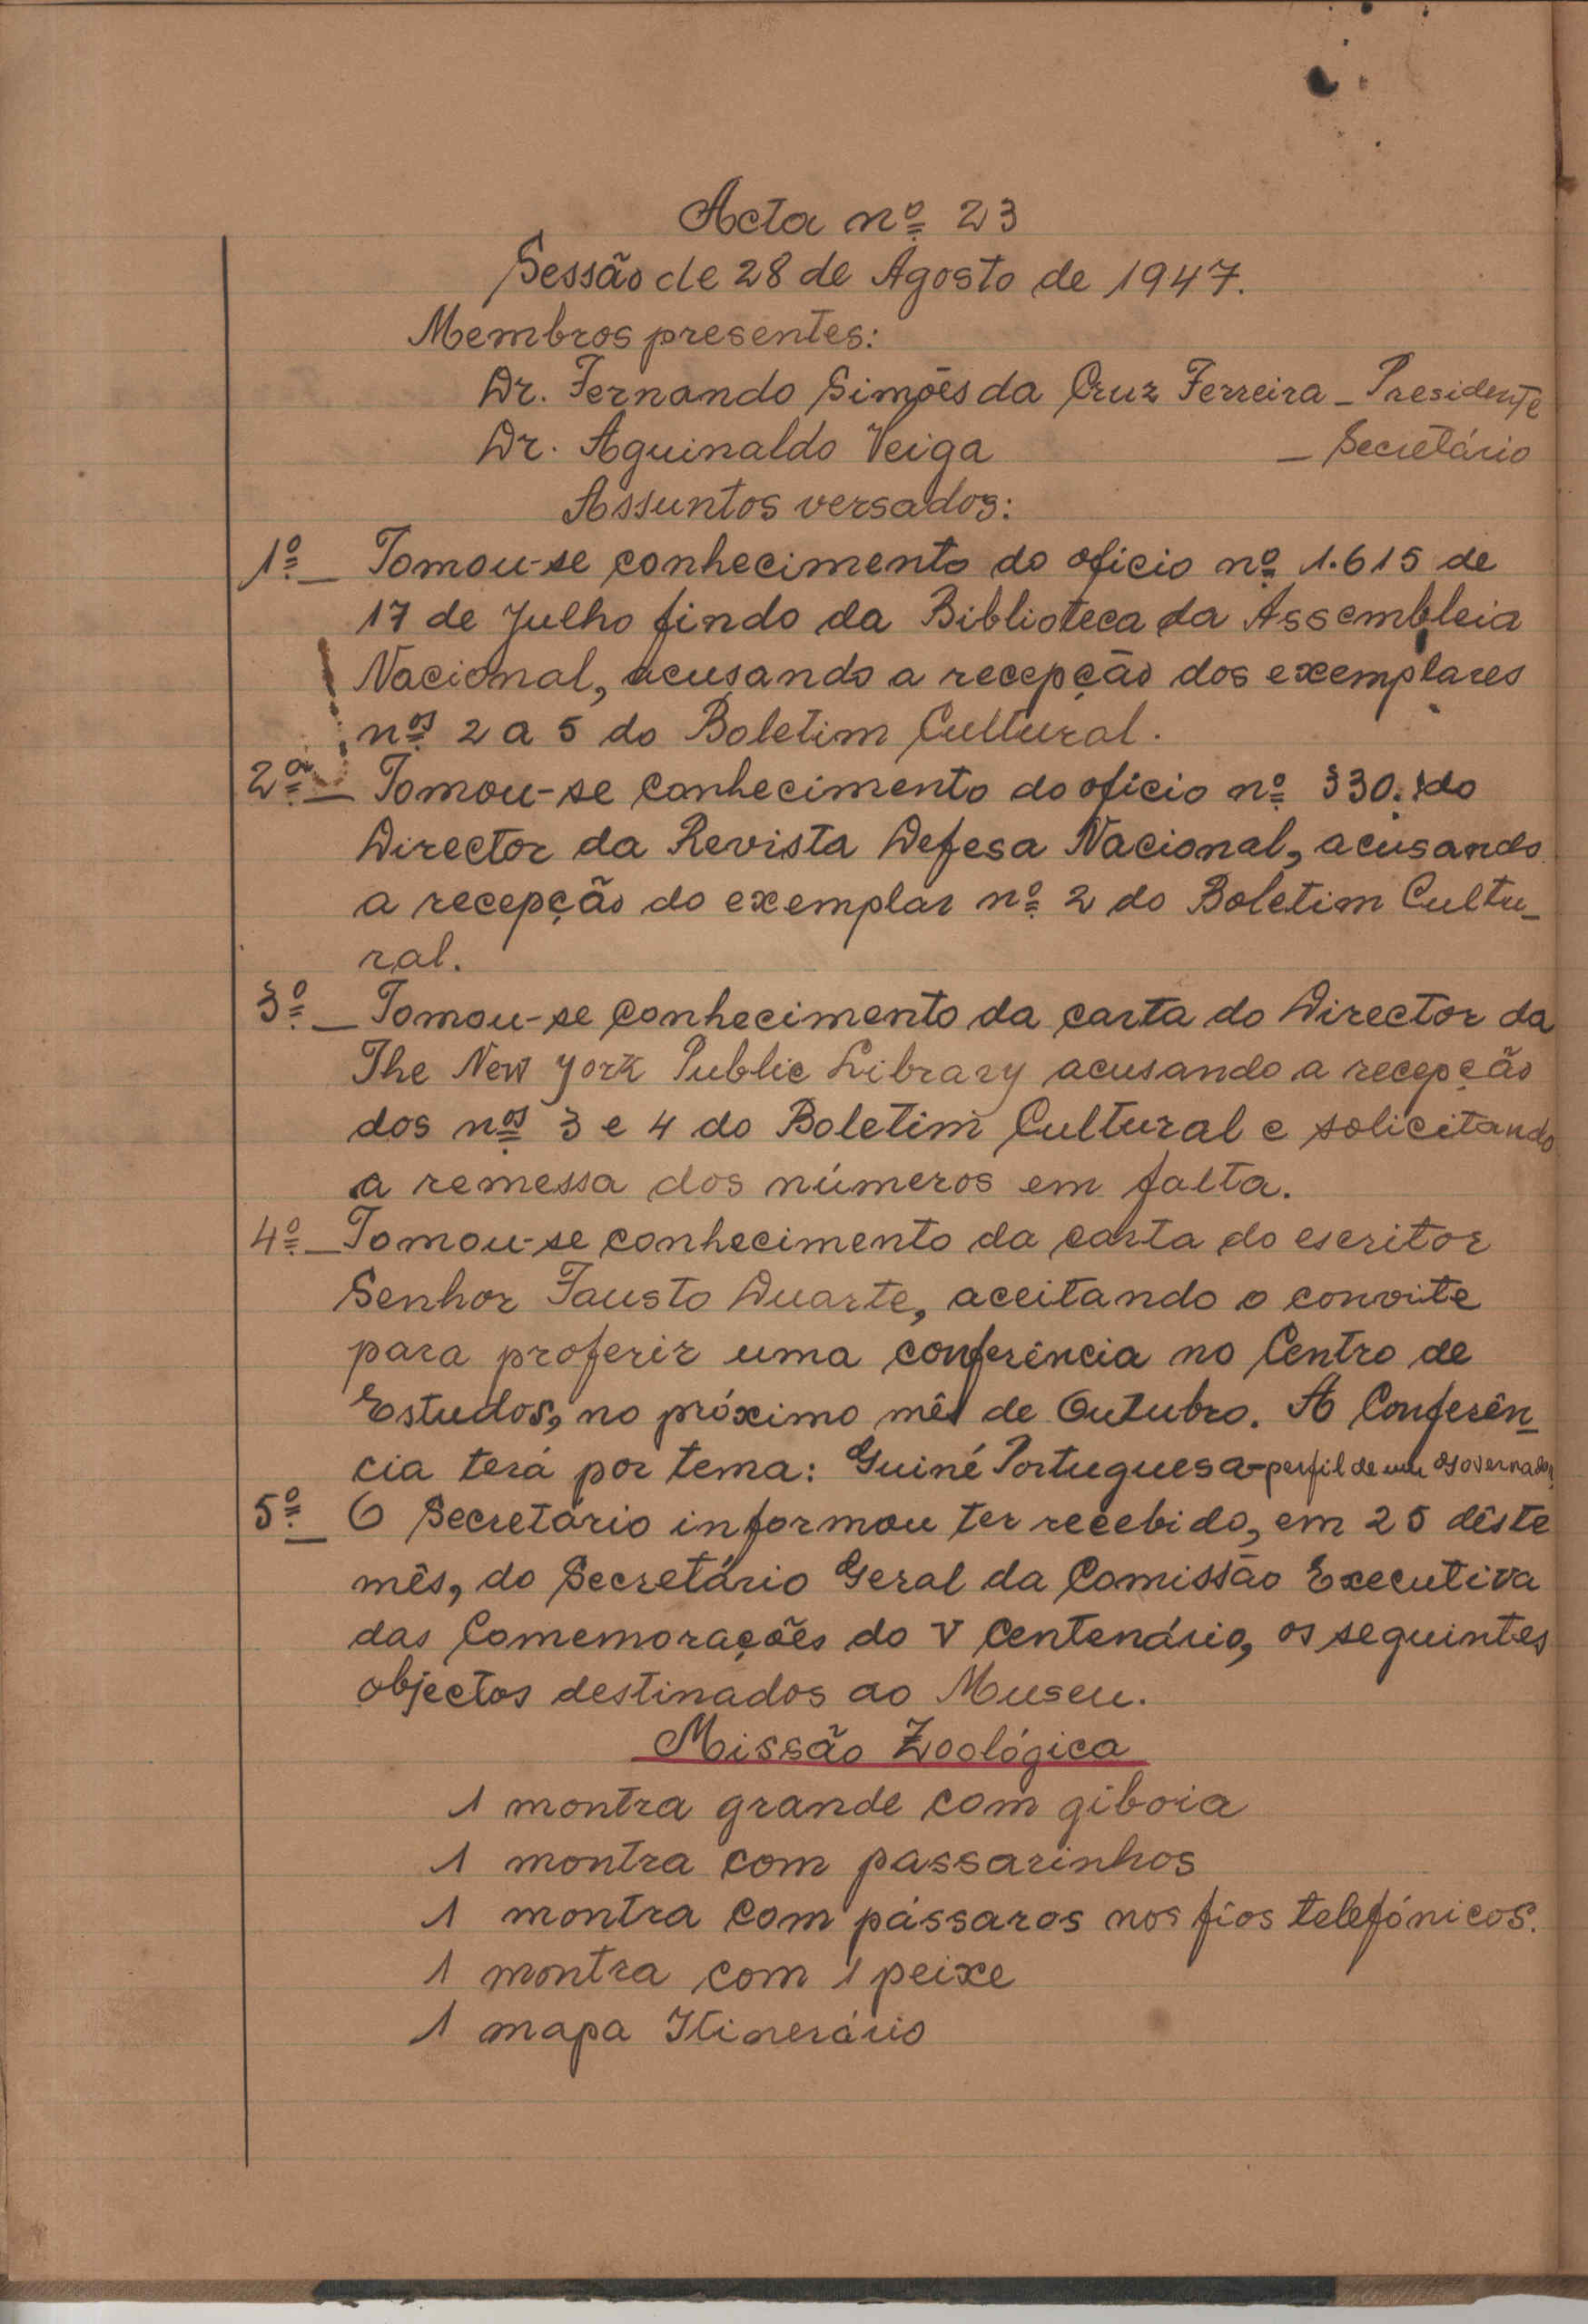 Acta nº 23
Sessão de 28 de Agosto de 1947.
Membros presentes:
Dr. Fernando Simões da Cruz Ferreira - Presidente
Dr. Aguinaldo Veiga - Secretário
Assuntos versados:
1º - Tomou-se conhecimento do oficio nº 1.615 de
17 de Julho findo da Biblioteca da Assembleia
Nacional, acusando a recepção dos exemplares
nºs 2 a 5 do Boletim Cultural.
2º - Tomou-se conhecimento do oficio nº 330. do
Director da Revista Defesa Nacional, acusando
a recepção do exemplar nº 2 do Boletim Cultu-
ral.
3º - Tomou-se conhecimento da carta do Director da
The New York Public Library acusando a recepção
dos nºs 3 e 4 do Boletim Cultural e solicitando
a remessa dos números em falta.
4º - Tomou-se conhecimento da carta do escritor
Senhor Fausto Duarte, aceitando o convite
para proferir uma conferência no Centro de
Estudos, no próximo mês de Outubro. A Conferên-
cia terá por tema: Guiné Portuguesa - perfil de um Governador.
5º - O Secretário informou ter recebido, em 25 dêste
mês, do Secretário Geral da Comissão Executiva
das Comemorações do V Centenário, os seguintes
objectos destinados ao Museu.
Missão Zoológica
1 montra grande com giboia
1 montra com passarinhos
1 montra com pássaros nos fios telefónicos.
1 montra com 1 peixe
1 mapa Itinerário